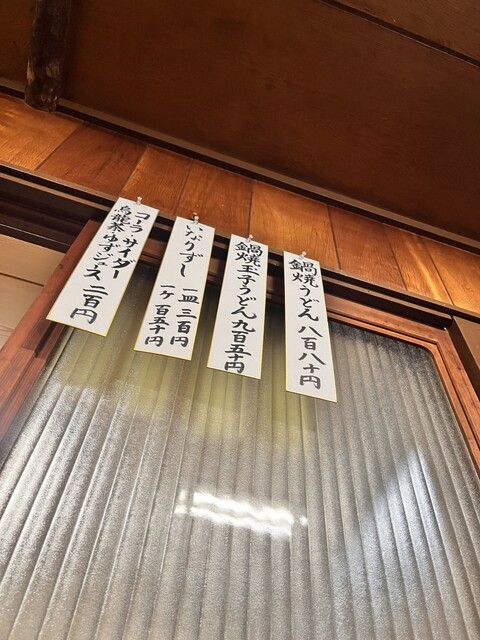 鍋焼うどん 八百八十円
鍋焼玉子うどん 九百五十円
いなりずし 一皿 三百円
一ヶ 百五十円
コーラ・サイダー
烏龍茶・ゆずジンス 二百円